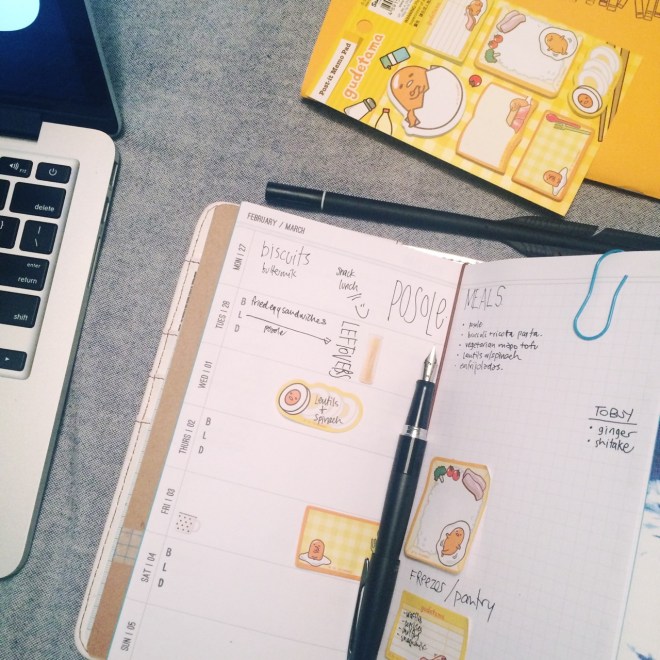 Post-it Memo Pad
gudetama
delete
return
enter
shift
FEBRUARY / MARCH
MON | 27
biscuits
buttermilk
snack
lunch
POSOLE
TUES | 28
B fried egg sandwiches
L
D posole
LEFTOVERS
WED | 01
Lentils
+
Spinach
THURS | 02
B
L
D
FRI | 03
SAT | 04
B
L
D
SUN | 05
MEALS
• broccoli + ricotta pasta
• vegetarian mapo tofu
• lentils w/spinach
TO BUY
• ginger
• shitake
FREEZER/pantry
gudetama